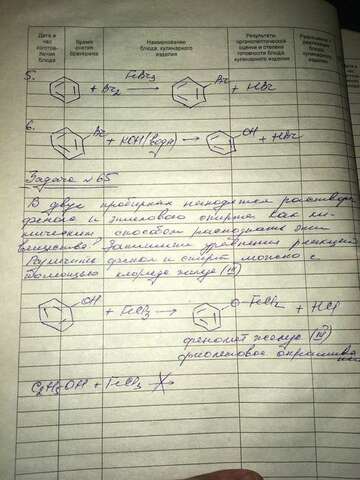 Дата и час изготовления блюда
Время снятия бракеража
Наименование блюда, кулинарного изделия
Результаты органолептической оценки и степени готовности блюда, кулинарного изделия
5.
+ Br₂
FeBr₃
Br
+ HBr
6.
Br
+ KOH (водн)
OH
+ HBr
Задача №65
В двух пробирках находятся растворы
фенола и этилового спирта. Как хи-
мическим способом распознать эти
вещества? Запишите уравнения реакций
Различить фенол и спирт можно с
помощью хлорида железа (III)
OH
+ FeCl₃
O-FeCl₂
+ HCl
фенолят железа (III)
фиолетовое окрашива
ние
C₂H₅OH + FeCl₃